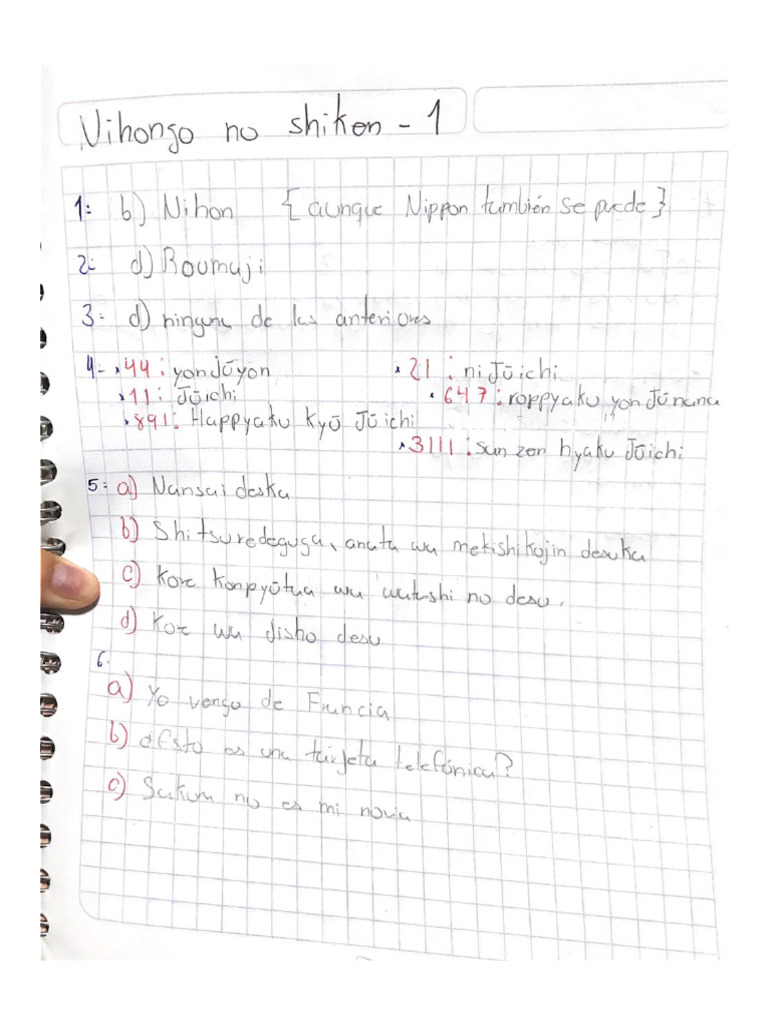 Nihongo no shiken - 1
1: b) Nihon {aunque Nippon también se puede}
2: d) Roumaji
3: d) ninguna de las anteriores
4: 44: yonjūyon
21: nijūichi
11: Jūichi
647: roppyaku yonJūnana
891: Happyaku Kyū Jūichi
3111: san zen hyaku Jūichi
5: a) Nansai deska
b) Shitsuredeguga, anata wa mekishikojin desuka
c) Kore Konpyūtaa wa watshi no desu.
d) Kore wa jisho desu
6.
a) Yo vengo de Francia
b) ¿Esto es una tarjeta telefónica?
c) Sakura no es mi novia